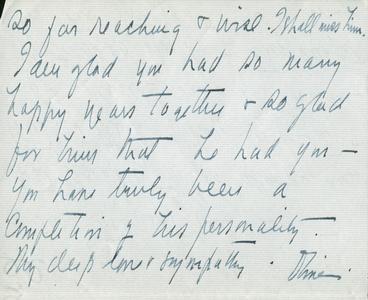 So far reaching & wise. I shall miss him.
I am glad you had so many
happy years together & so glad
for him that he had you —
You have truly been a
Completion of his personality.
My deep love & sympathy.